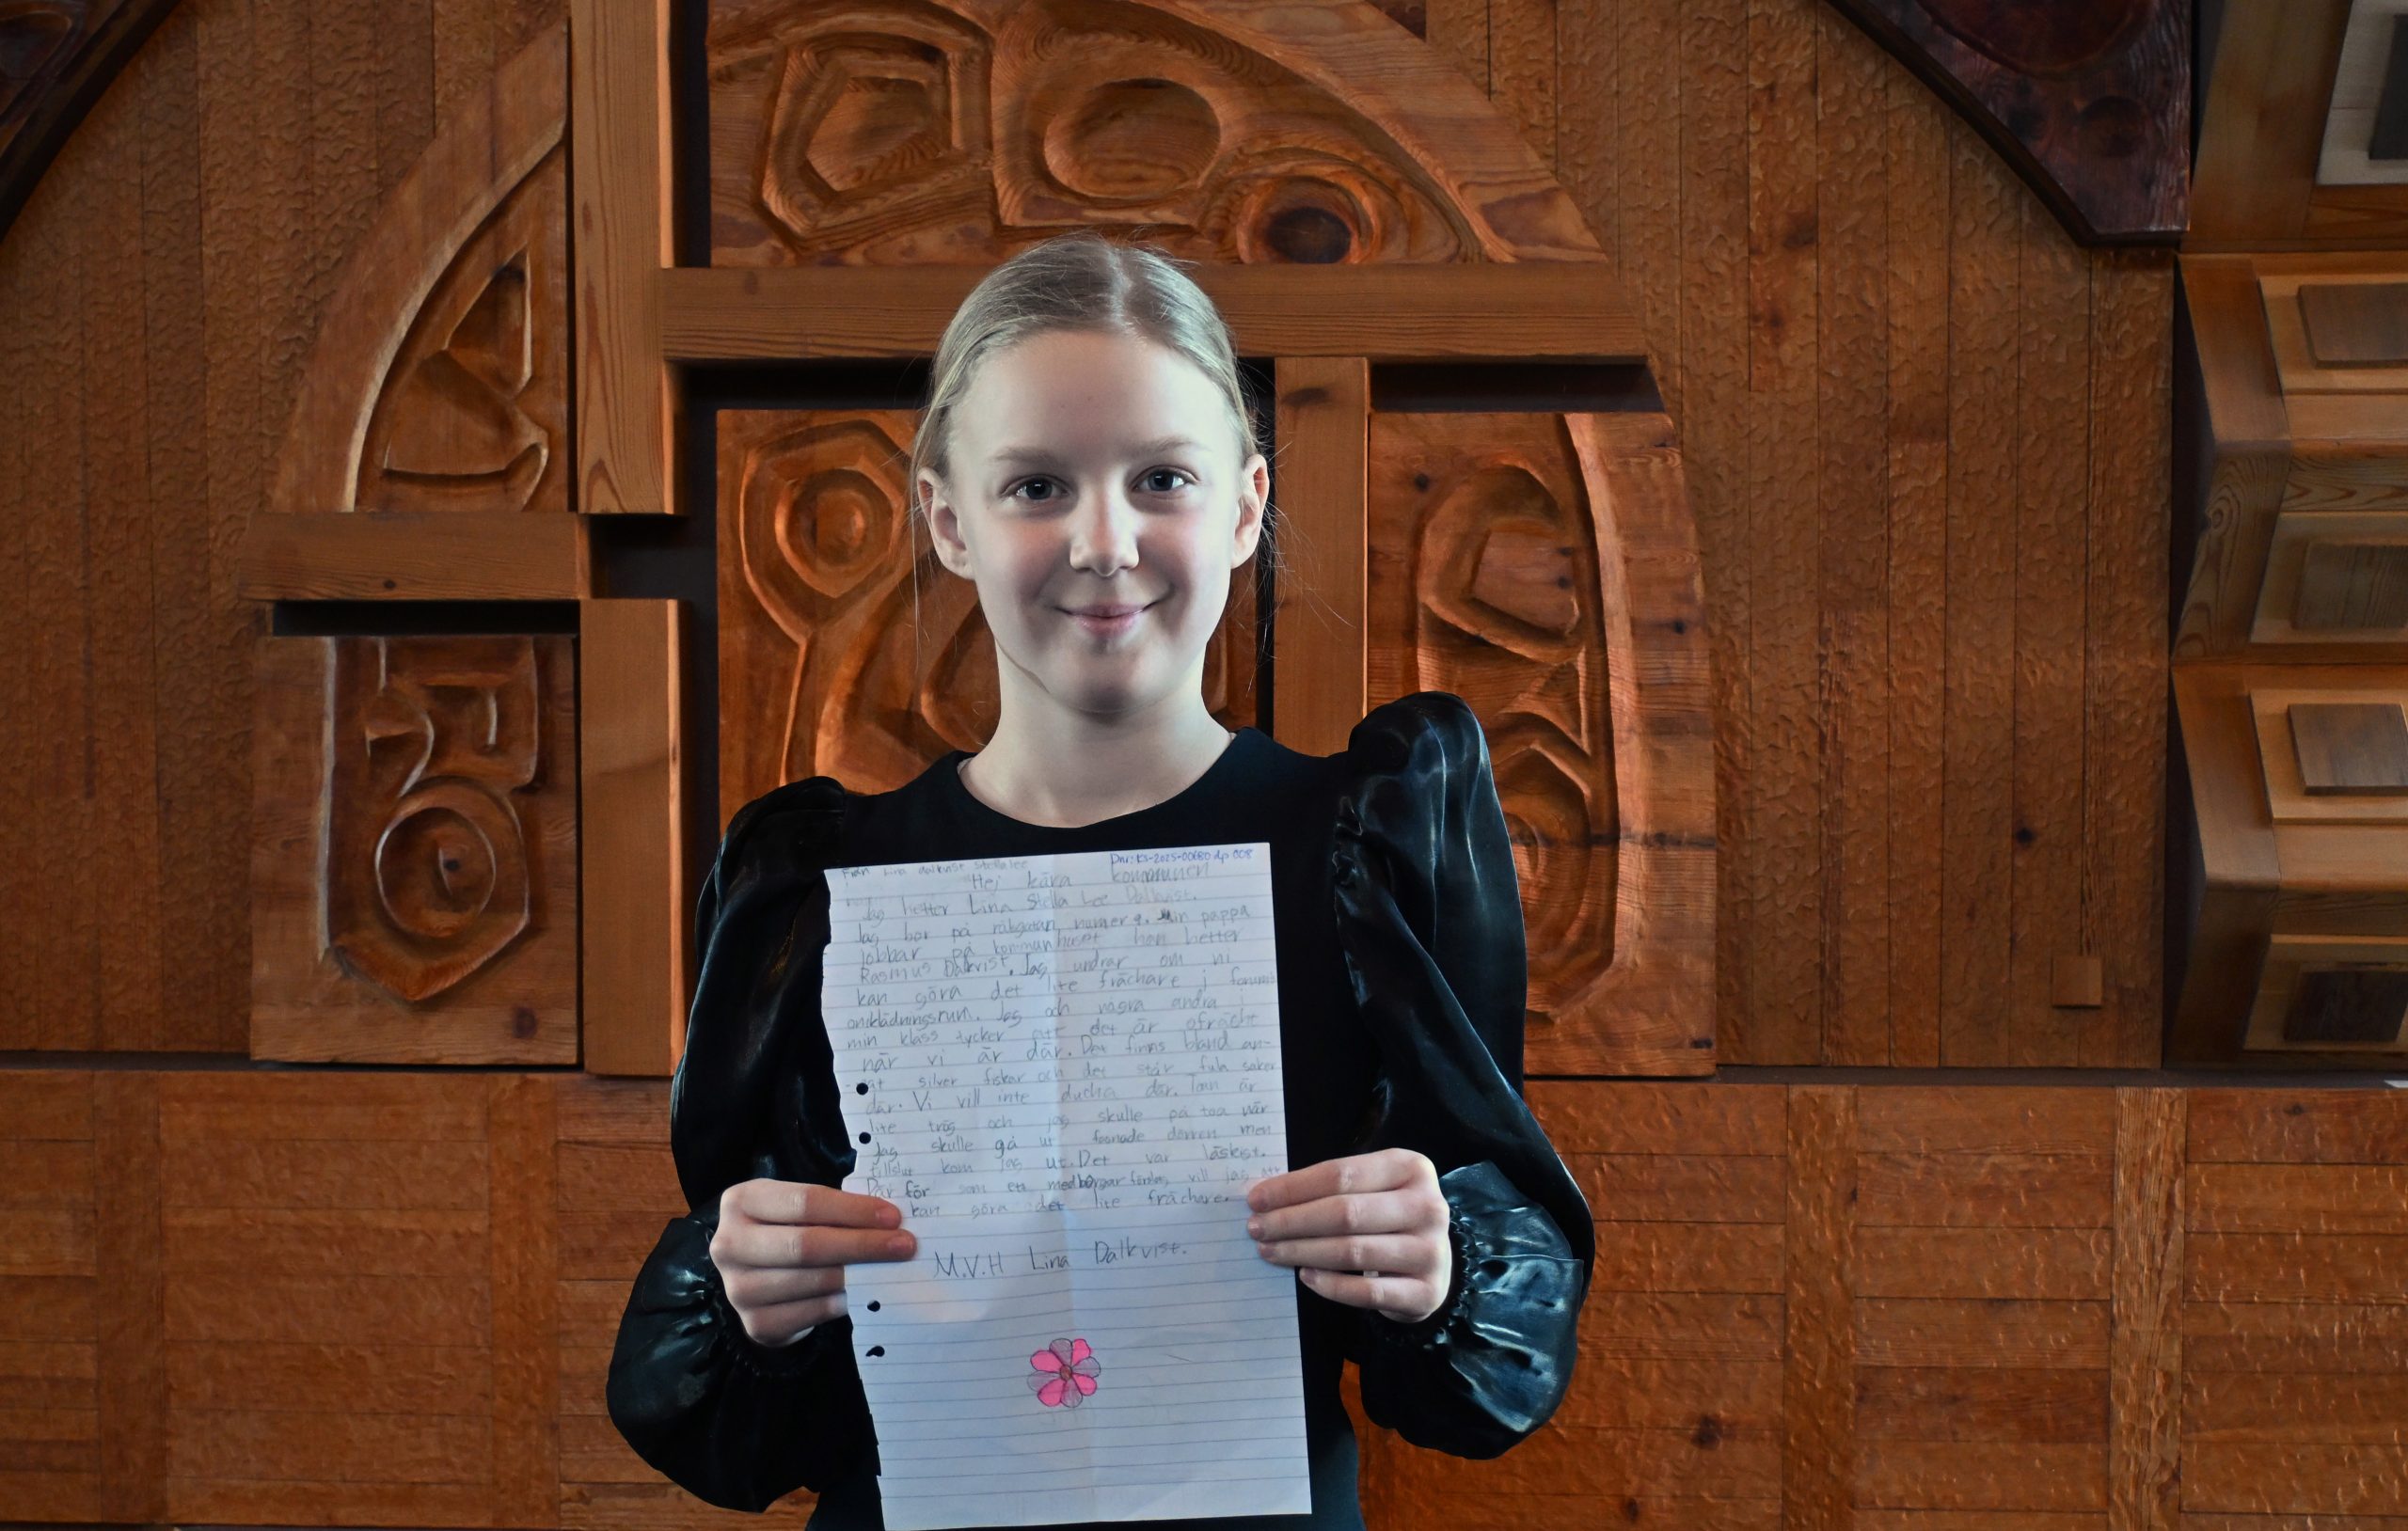 Från Lina dalkvist Stella lee
Dnr: KS-2025-00680 dp 008
Hej kära kommunen
Jag hetter Lina Stella Lee Dalkvist.
Jag bor på råbgatan, numer 9. Min pappa
jobbar på kommunhuset han hetter
Rasmus Dalkvist. Jag undrar om ni
kan göra det lite fräschare i forums
omklädningsrum. Jag och några andra i
min klass tycker att det är ofräsht
när vi är där. Det finns bland an-
at silver fiskar och det står fula saker
där. Vi vill inte ducha där. Toan är
lite trög och jag skulle på toa när
Jag skulle gå ut fasnade dörren men
tillslut kom jag ut. Det var läskigt.
Där för som ett medborgar förslag vill jag att
kan göra det lite fräschare.
M.V.H Lina Dalkvist.